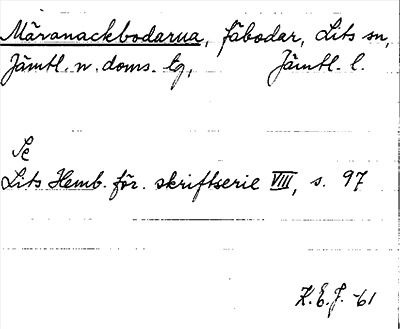 Märanackbodarna, fäbodar, Lits sn,
Jämtl. n. doms. tg, Jämtl. l.
Se
Lits Hemb. för. skriftserie VIII, s. 97
K.E.J. -61